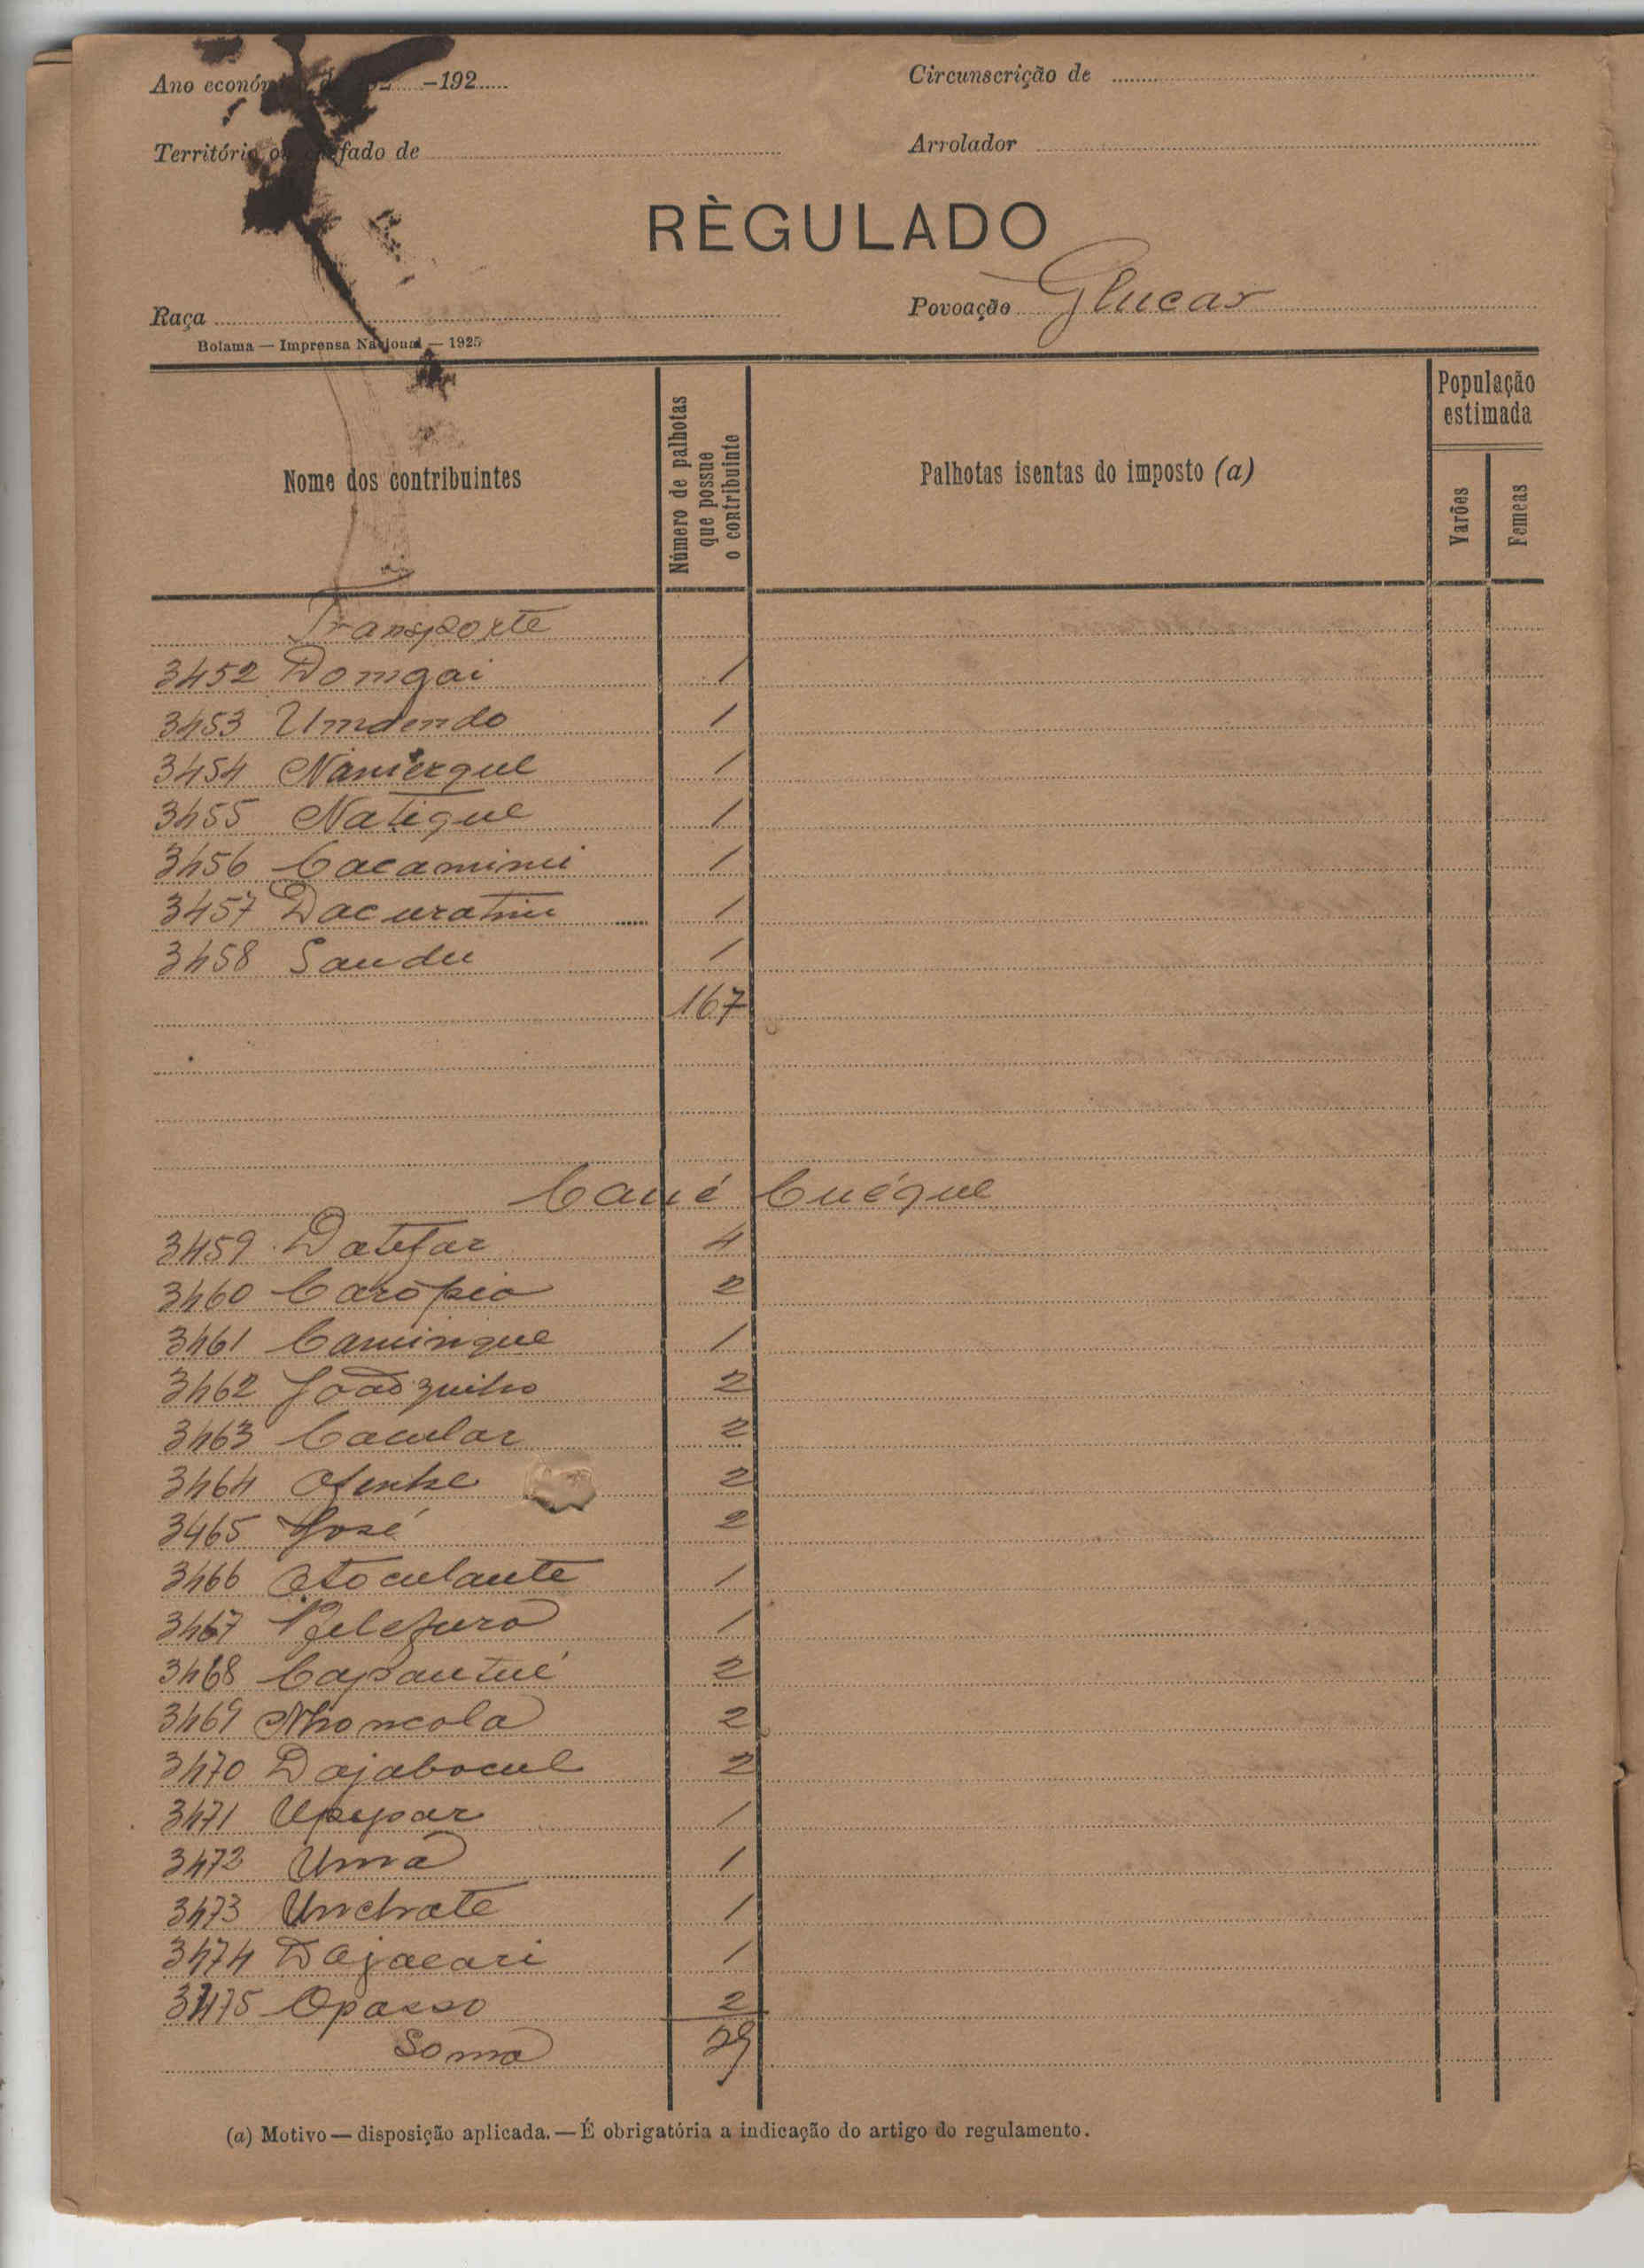 Ano econó de 192 -192
Circunscrição de
Território ou chefado de
Arrolador
RÈGULADO
Raça
Povoação Glucar
Bolama — Imprensa Nacional — 1925
Nome dos contribuintes
Número de palhotas que possue o contribuinte
Palhotas isentas do imposto (a)
População estimada
Varões
Femeas
Transporte
3452 Domgai 1
3453 Umdendo 1
3454 Nanierque 1
3455 Natique 1
3456 Cacamimi 1
3457 Dacuratim 1
3458 Sandu 1
167
Caué Cuéque
3459 Datefar 4
3460 Carópia 2
3461 Caminque 1
3462 Joãozinho 2
3463 Cacular 2
3464 2
3465 José 2
3466 Atoculante 1
3467 1
3468 Capantué 2
3469 Nhoncola 2
3470 Dajabocul 2
3471 Upepar 1
3472 Uma 1
3473 Unchate 1
3474 Dajacari 1
3475 Opasso 2
Soma 29
(a) Motivo — disposição aplicada. — É obrigatória a indicação do artigo do regulamento.